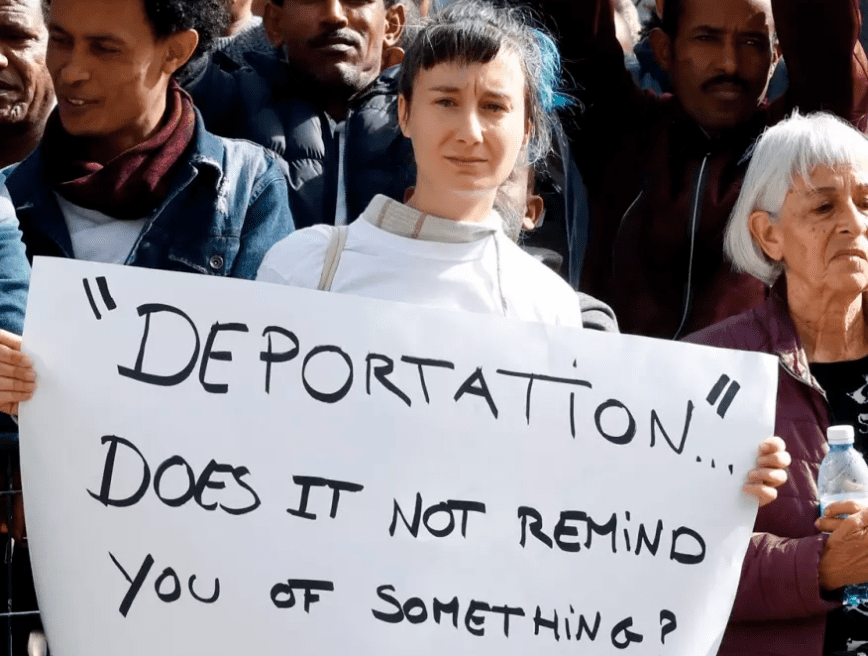 "DEPORTATION..."
DOES IT NOT REMIND
YOU OF SOMETHING?